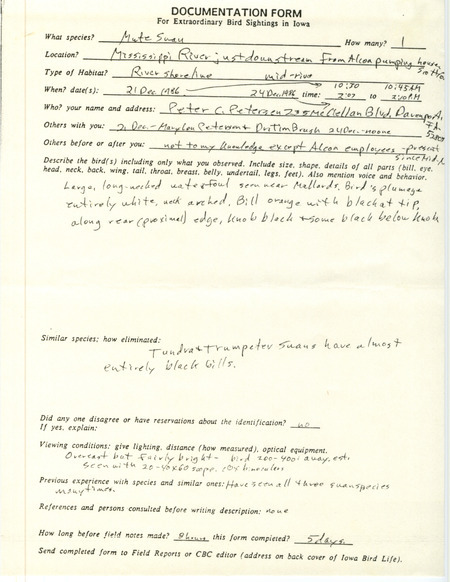 DOCUMENTATION FORM
For Extraordinary Bird Sightings in Iowa
What species? Mute Swan How many? 1
Location? Mississippi River just downstream from Alcoa pumping house,
Type of Habitat? River shoreline mid-river
10:30 10:45AM
When? date(s): 21 Dec. 1986 24 Dec. 1986 time: to
Who? your name and address: Peter C. Petersen 235 McClellan Blvd, Davenport,
Others with you: 21 Dec. - Mary Lou Petersen & Dr. Tim Brush 24 Dec. - none
Others before or after you: not to my knowledge except Alcoa employees - present
Describe the bird(s) including only what you observed. Include size, shape, details of all parts (bill, eye,
head, neck, back, wing, tail, throat, breast, belly, undertail, legs, feet). Also mention voice and behavior.
Large, long-necked waterfowl seen near Mallards. Bird's plumage
entirely white, neck arched. Bill orange with black at tip,
along rear (proximal) edge, knob black & some black below knob
Similar species: how eliminated:
Tundra & Trumpeter Swans have almost
entirely black bills.
Did any one disagree or have reservations about the identification? no
If yes, explain:
Viewing conditions: give lighting, distance (how measured), optical equipment.
Overcast but fairly bright - bird 200-400' away, est.
seen with 20-40X60 scope, 10X binoculars
Previous experience with species and similar ones: Have seen all three swan species
many times.
References and persons consulted before writing description: none
How long before field notes made? this form completed? 5 days
Send completed form to Field Reports or CBC editor (address on back cover of Iowa Bird Life).